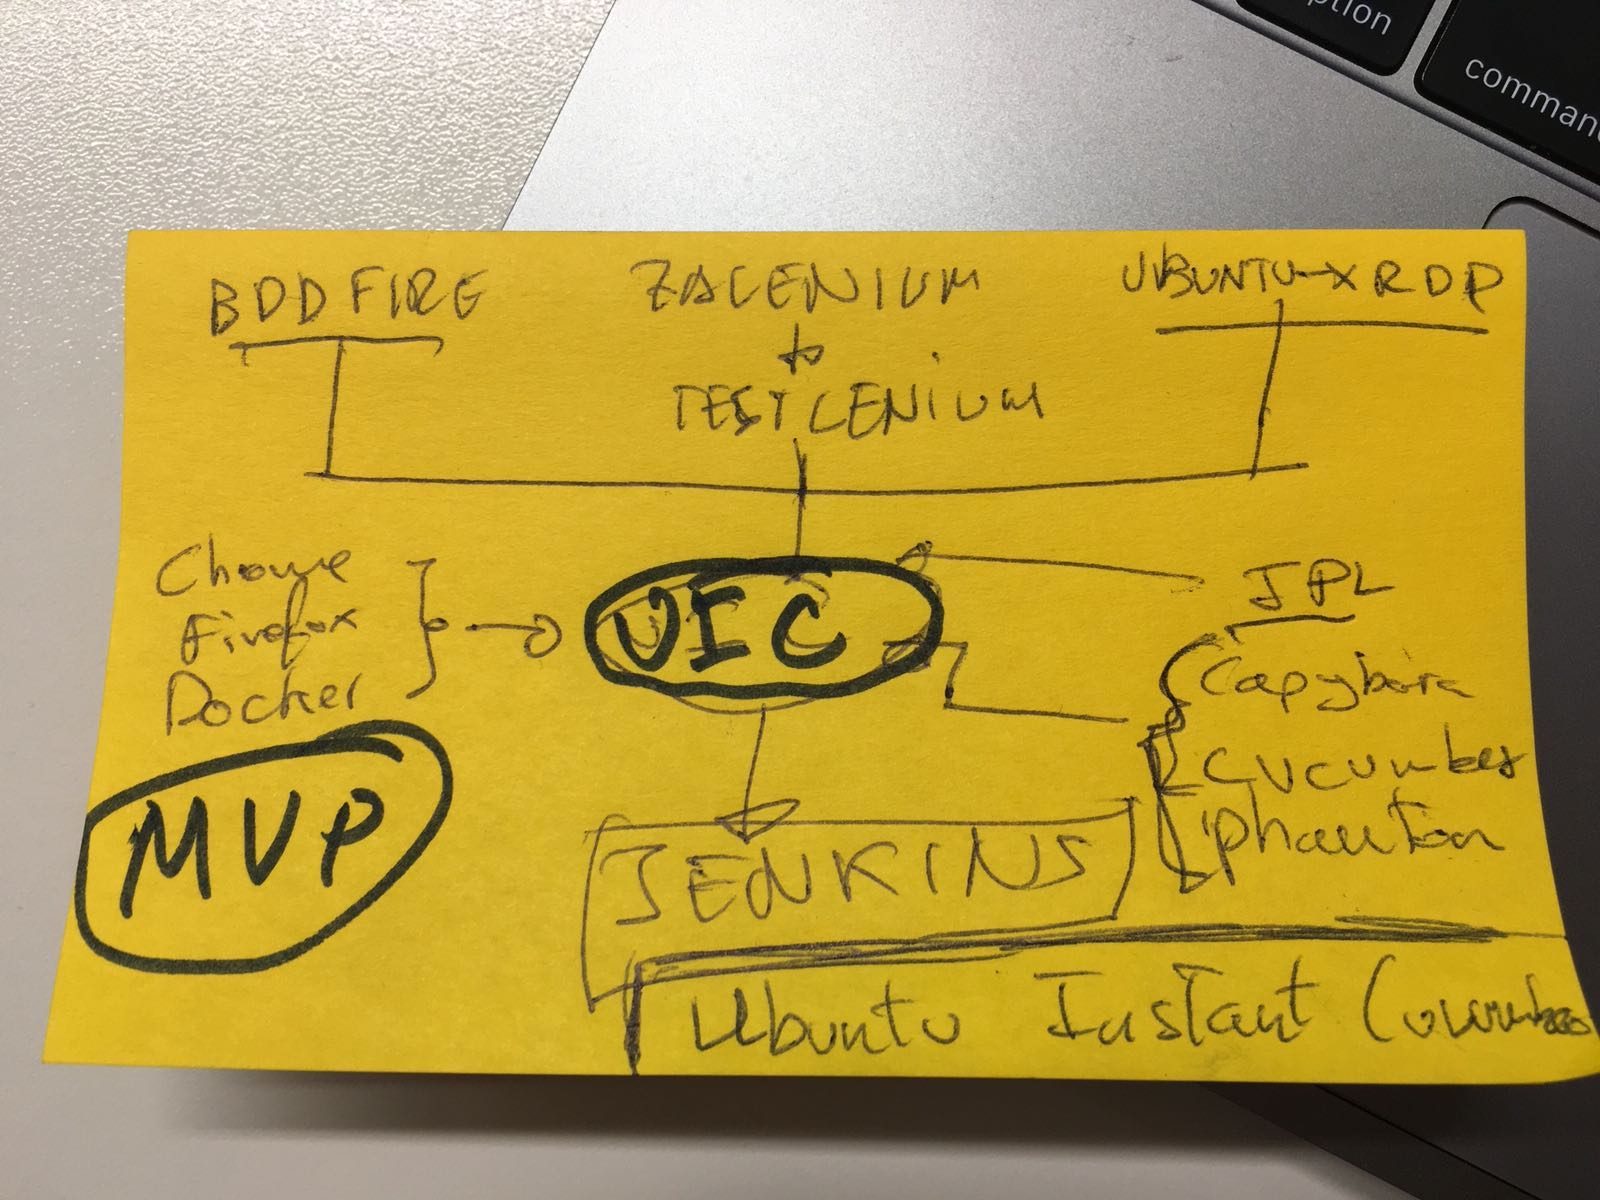 ption
command
BDDFIRE
ZALENIUM
UBUNTU-XRDP
to
TESTLENIUM
Chrome
Firefox
Docker
UIC
JPL
Capybara
Cucumber
Phantom
MVP
JENKINS
Ubuntu Instant Cucumber